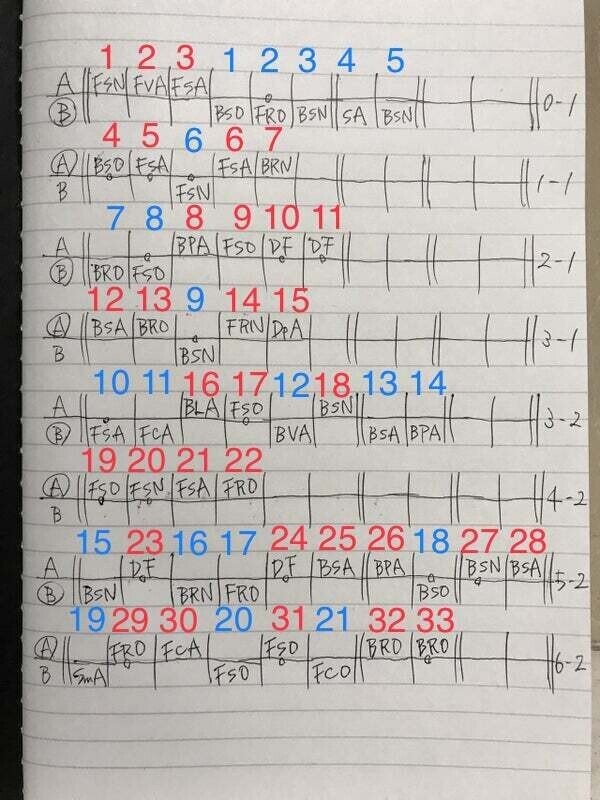 1 2 3 1 2 3 4 5
A FSN FVA FSA
B BSO FRO BSN SA BSN 0-1
4 5 6 6 7
A BSO FSA FSA BRN 1-1
B FSN
7 8 8 9 10 11
A BPA FSO DF DF 2-1
B BRO FSO
12 13 9 14 15
A BSA BRO FRN DPA 3-1
B BSN
10 11 16 17 12 18 13 14
A BLA FSO BSN 3-2
B FSA FCA BVA BSA BPA
19 20 21 22
A FSO FSN FSA FRO 4-2
B
15 23 16 17 24 25 26 18 27 28
A DF DF BSA BPA BSN BSA 5-2
B BSN BRN FRO BSO
19 29 30 20 31 21 32 33
A FRO FCA FSO BRO BRO
B SmA FSO FCO 6-2